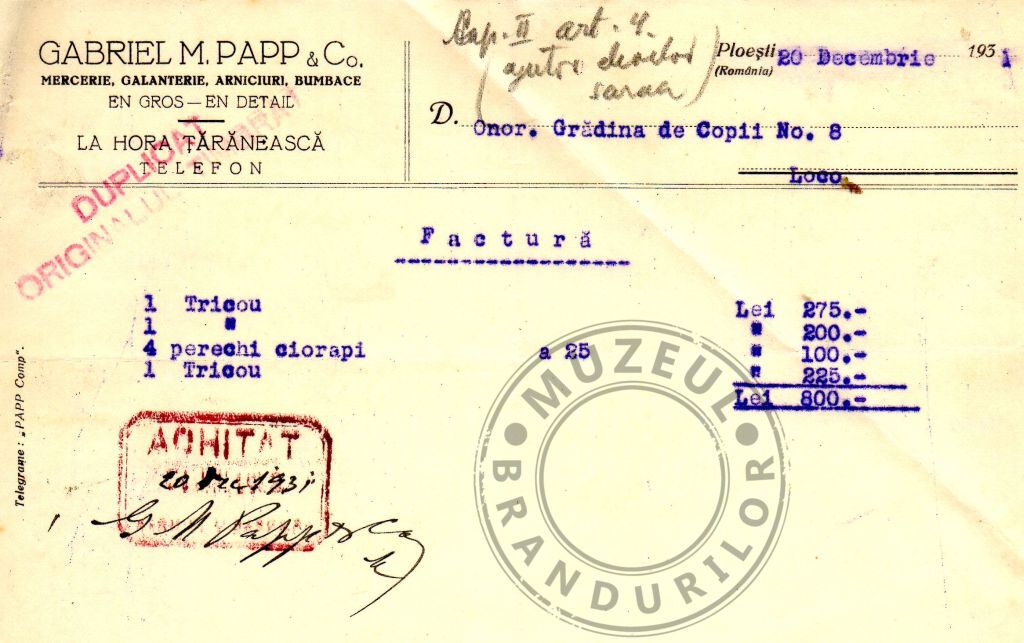 GABRIEL M. PAPP & Co.
MERCERIE, GALANTERIE, ARNICIURI, BUMBACE
EN GROS — EN DETAIL
LA HORA ȚĂRĂNEASCĂ
TELEFON
DUPLICAT
ORIGINALUL
Cap. II art. 4
(ajutor elevilor
saraci)
Ploești 20 Decembrie 1931
(România)
D. Onor. Grădina de Copii No. 8
Loco
Factură
1 Tricou Lei 275.-
1 " " 200.-
4 perechi ciorapi a 25 " 100.-
1 Tricou " 225.-
Lei 800.-
Telegrame: „PAPP Comp".
ACHITAT
20 Dec 1931
G M Papp & Co
MUZEUL
BRANDURILOR